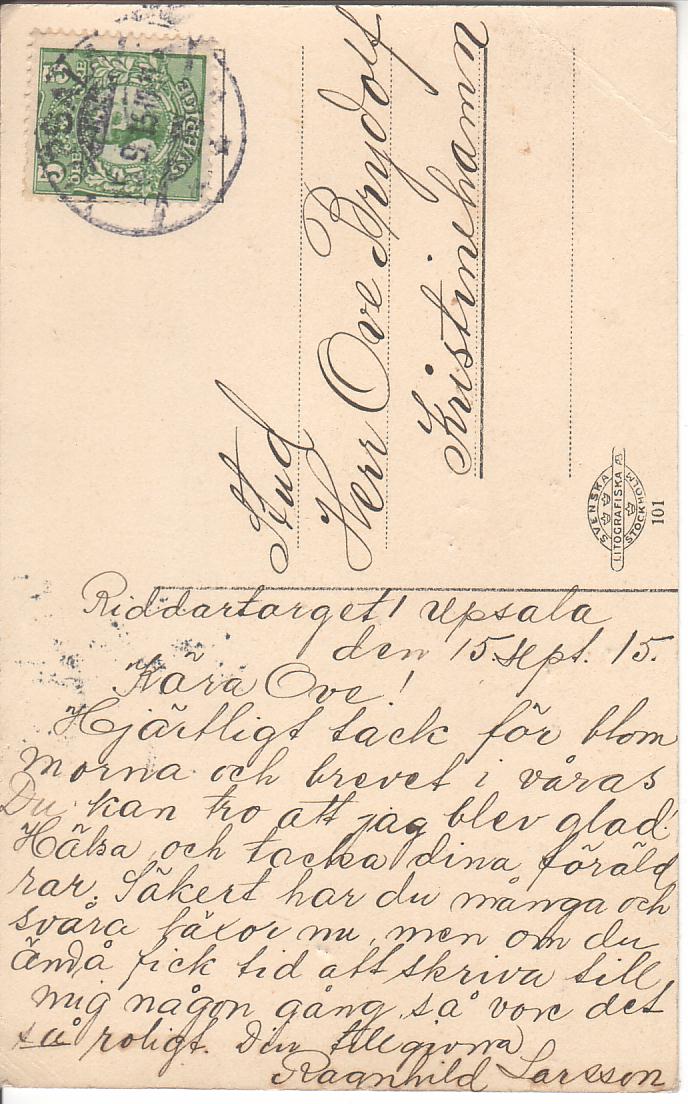 Stud
Herr Ove Brydolf
Kristinehamn
SVENSKA
LITOGRAFISKA A
STOCKHOLM
101
5
ÖRE
SVERIGE
Riddartorget! Upsala
den 15 sept. 15.
Kära Ove!
Hjärtligt tack för blom
morna och brevet i våras
Du kan tro att jag blev glad!
Hälsa och tacka dina föräld
rar. Säkert har du många och
svåra läxor nu, men om du
ändå fick tid att skriva till
mig någon gång så vore det
så roligt. Din tillgivna
Ragnhild Larsson